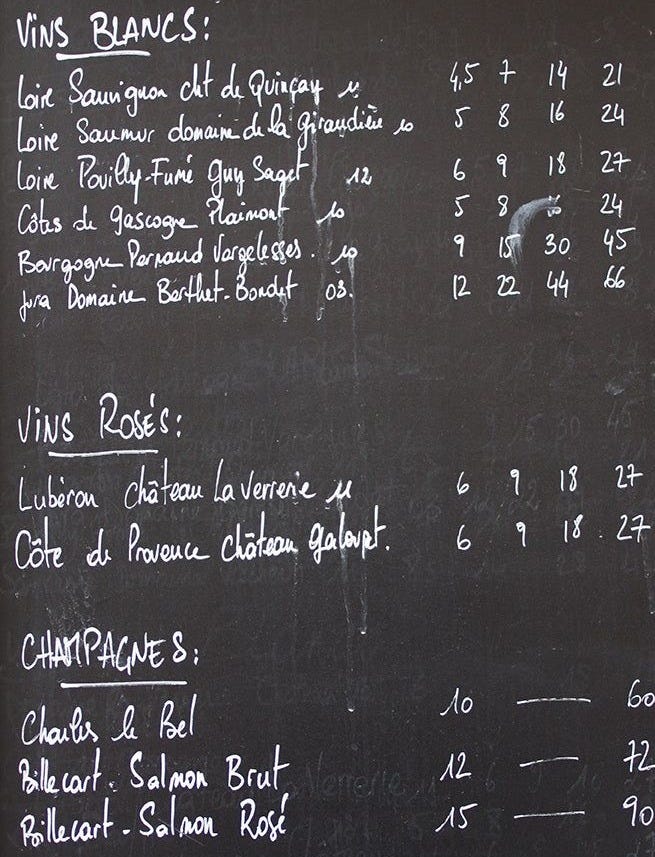 Vins Blancs:
Loire Sauvignon cht de Quinçay 11 4,5 7 14 21
Loire Saumur domaine de la Giraudière 10 5 8 16 24
Loire Pouilly-Fumé Guy Saget 12 6 9 18 27
Côtes de Gascogne Plaimont 10 5 8 16 24
Bourgogne Pernand Vergelesses. 10 9 15 30 45
Jura Domaine Berthet-Bondet 03. 12 22 44 66
Vins Rosés:
Lubéron château La Verrerie 11 6 9 18 27
Côte de Provence château Galoupet. 6 9 18 27
CHAMPAGNES:
Charles le Bel 10 — 60
Billecart-Salmon Brut 12 — 72
Billecart-Salmon Rosé 15 — 90